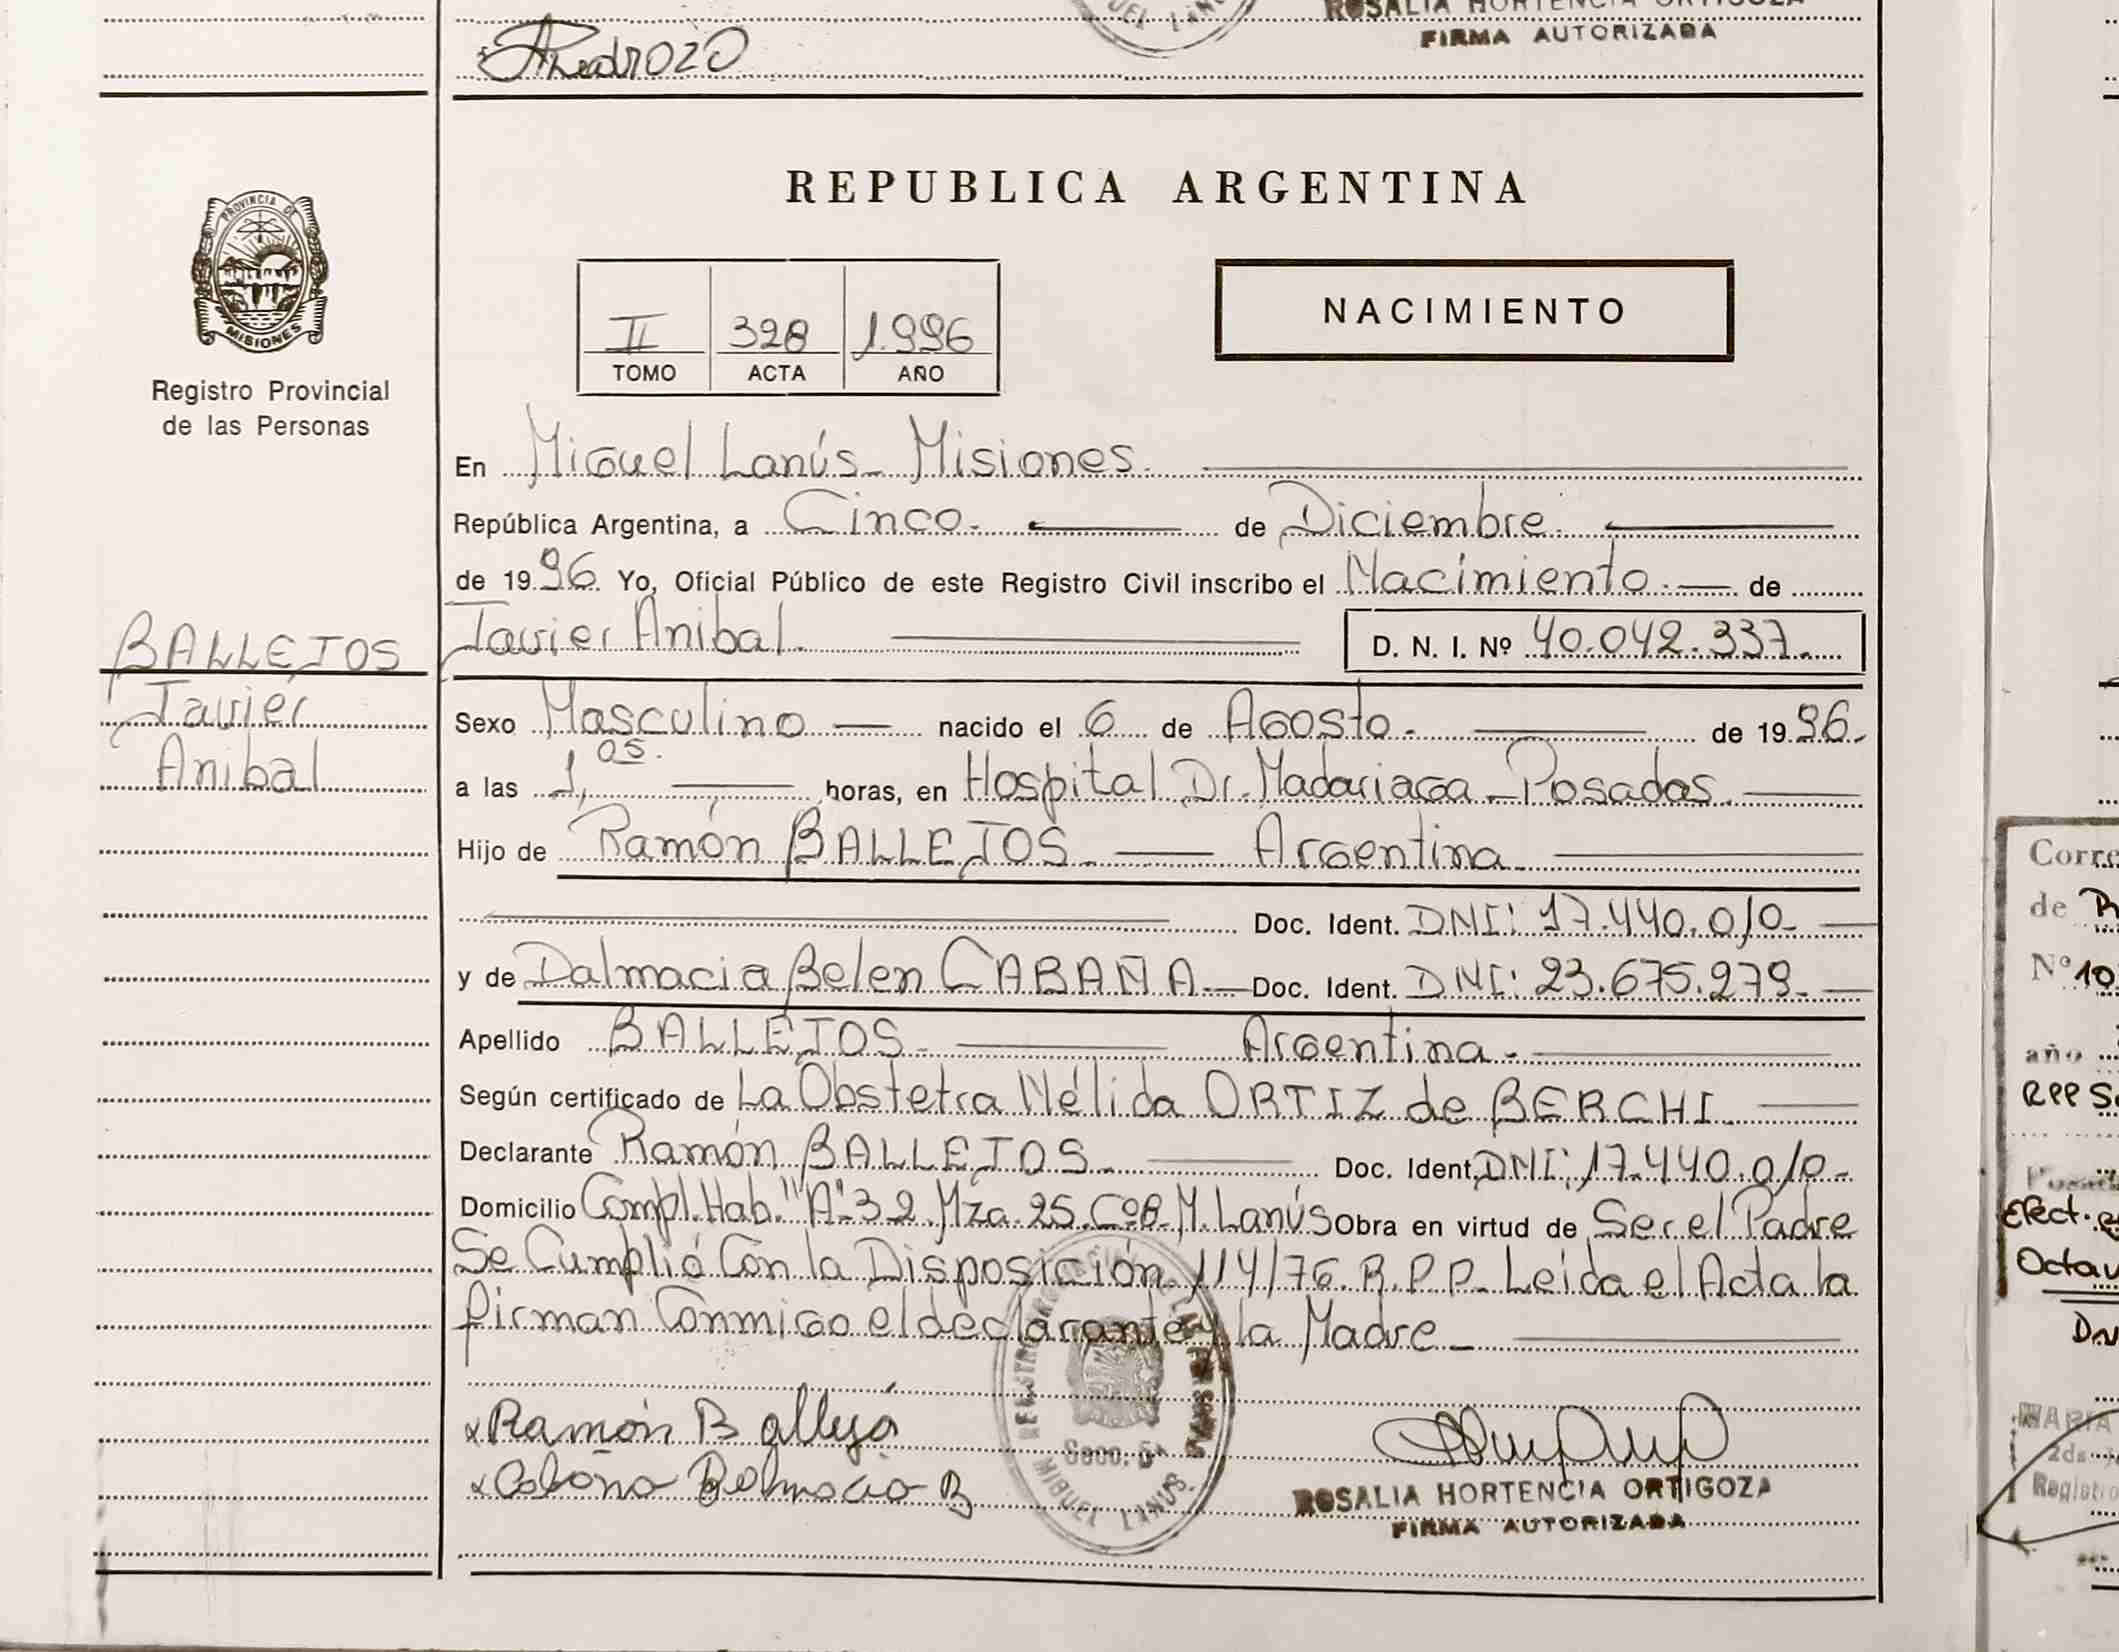 ROSALIA HORTENCIA ORTIGOZA
FIRMA AUTORIZADA
PROVINCIA DE
MISIONES
Registro Provincial
de las Personas
BALLEJOS
Javier
Anibal
REPUBLICA ARGENTINA
II 328 1.996
TOMO ACTA AÑO
NACIMIENTO
En Miguel Lanús - Misiones.
República Argentina, a Cinco. de Diciembre.
de 1996. Yo, Oficial Público de este Registro Civil inscribo el Nacimiento. de
Javier Anibal. D. N. I. Nº 40.042.337.
Sexo Masculino nacido el 6 de Agosto. de 1996.
a las 1,05. horas, en Hospital Dr. Madariaga - Posadas.
Hijo de Ramón BALLEJOS. Argentina.
Doc. Ident. DNI: 17.440.010.
y de Dalmacia Belen CABAÑA. Doc. Ident. DNI: 23.675.279.
Apellido BALLEJOS. Argentina.
Según certificado de La Obstetra Nélida ORTIZ de BERCHI.
Declarante Ramón BALLEJOS. Doc. Ident. DNI: 17.440.010.
Domicilio Compl. Hab. "A" 32. Mza. 25. Cº8. M. Lanús Obra en virtud de Ser el Padre
Se Cumplió Con la Disposición 114/76. R.P.P. Leída el Acta la
firman Conmigo el declarante y la Madre.
x Ramón B
x Cabaña Dalmacia B
Secc. 5a
MIGUEL LANUS.
ROSALIA HORTENCIA ORTIGOZA
FIRMA AUTORIZADA
de
Nº 10
año
RPP
Elect.
MARIA
Registro